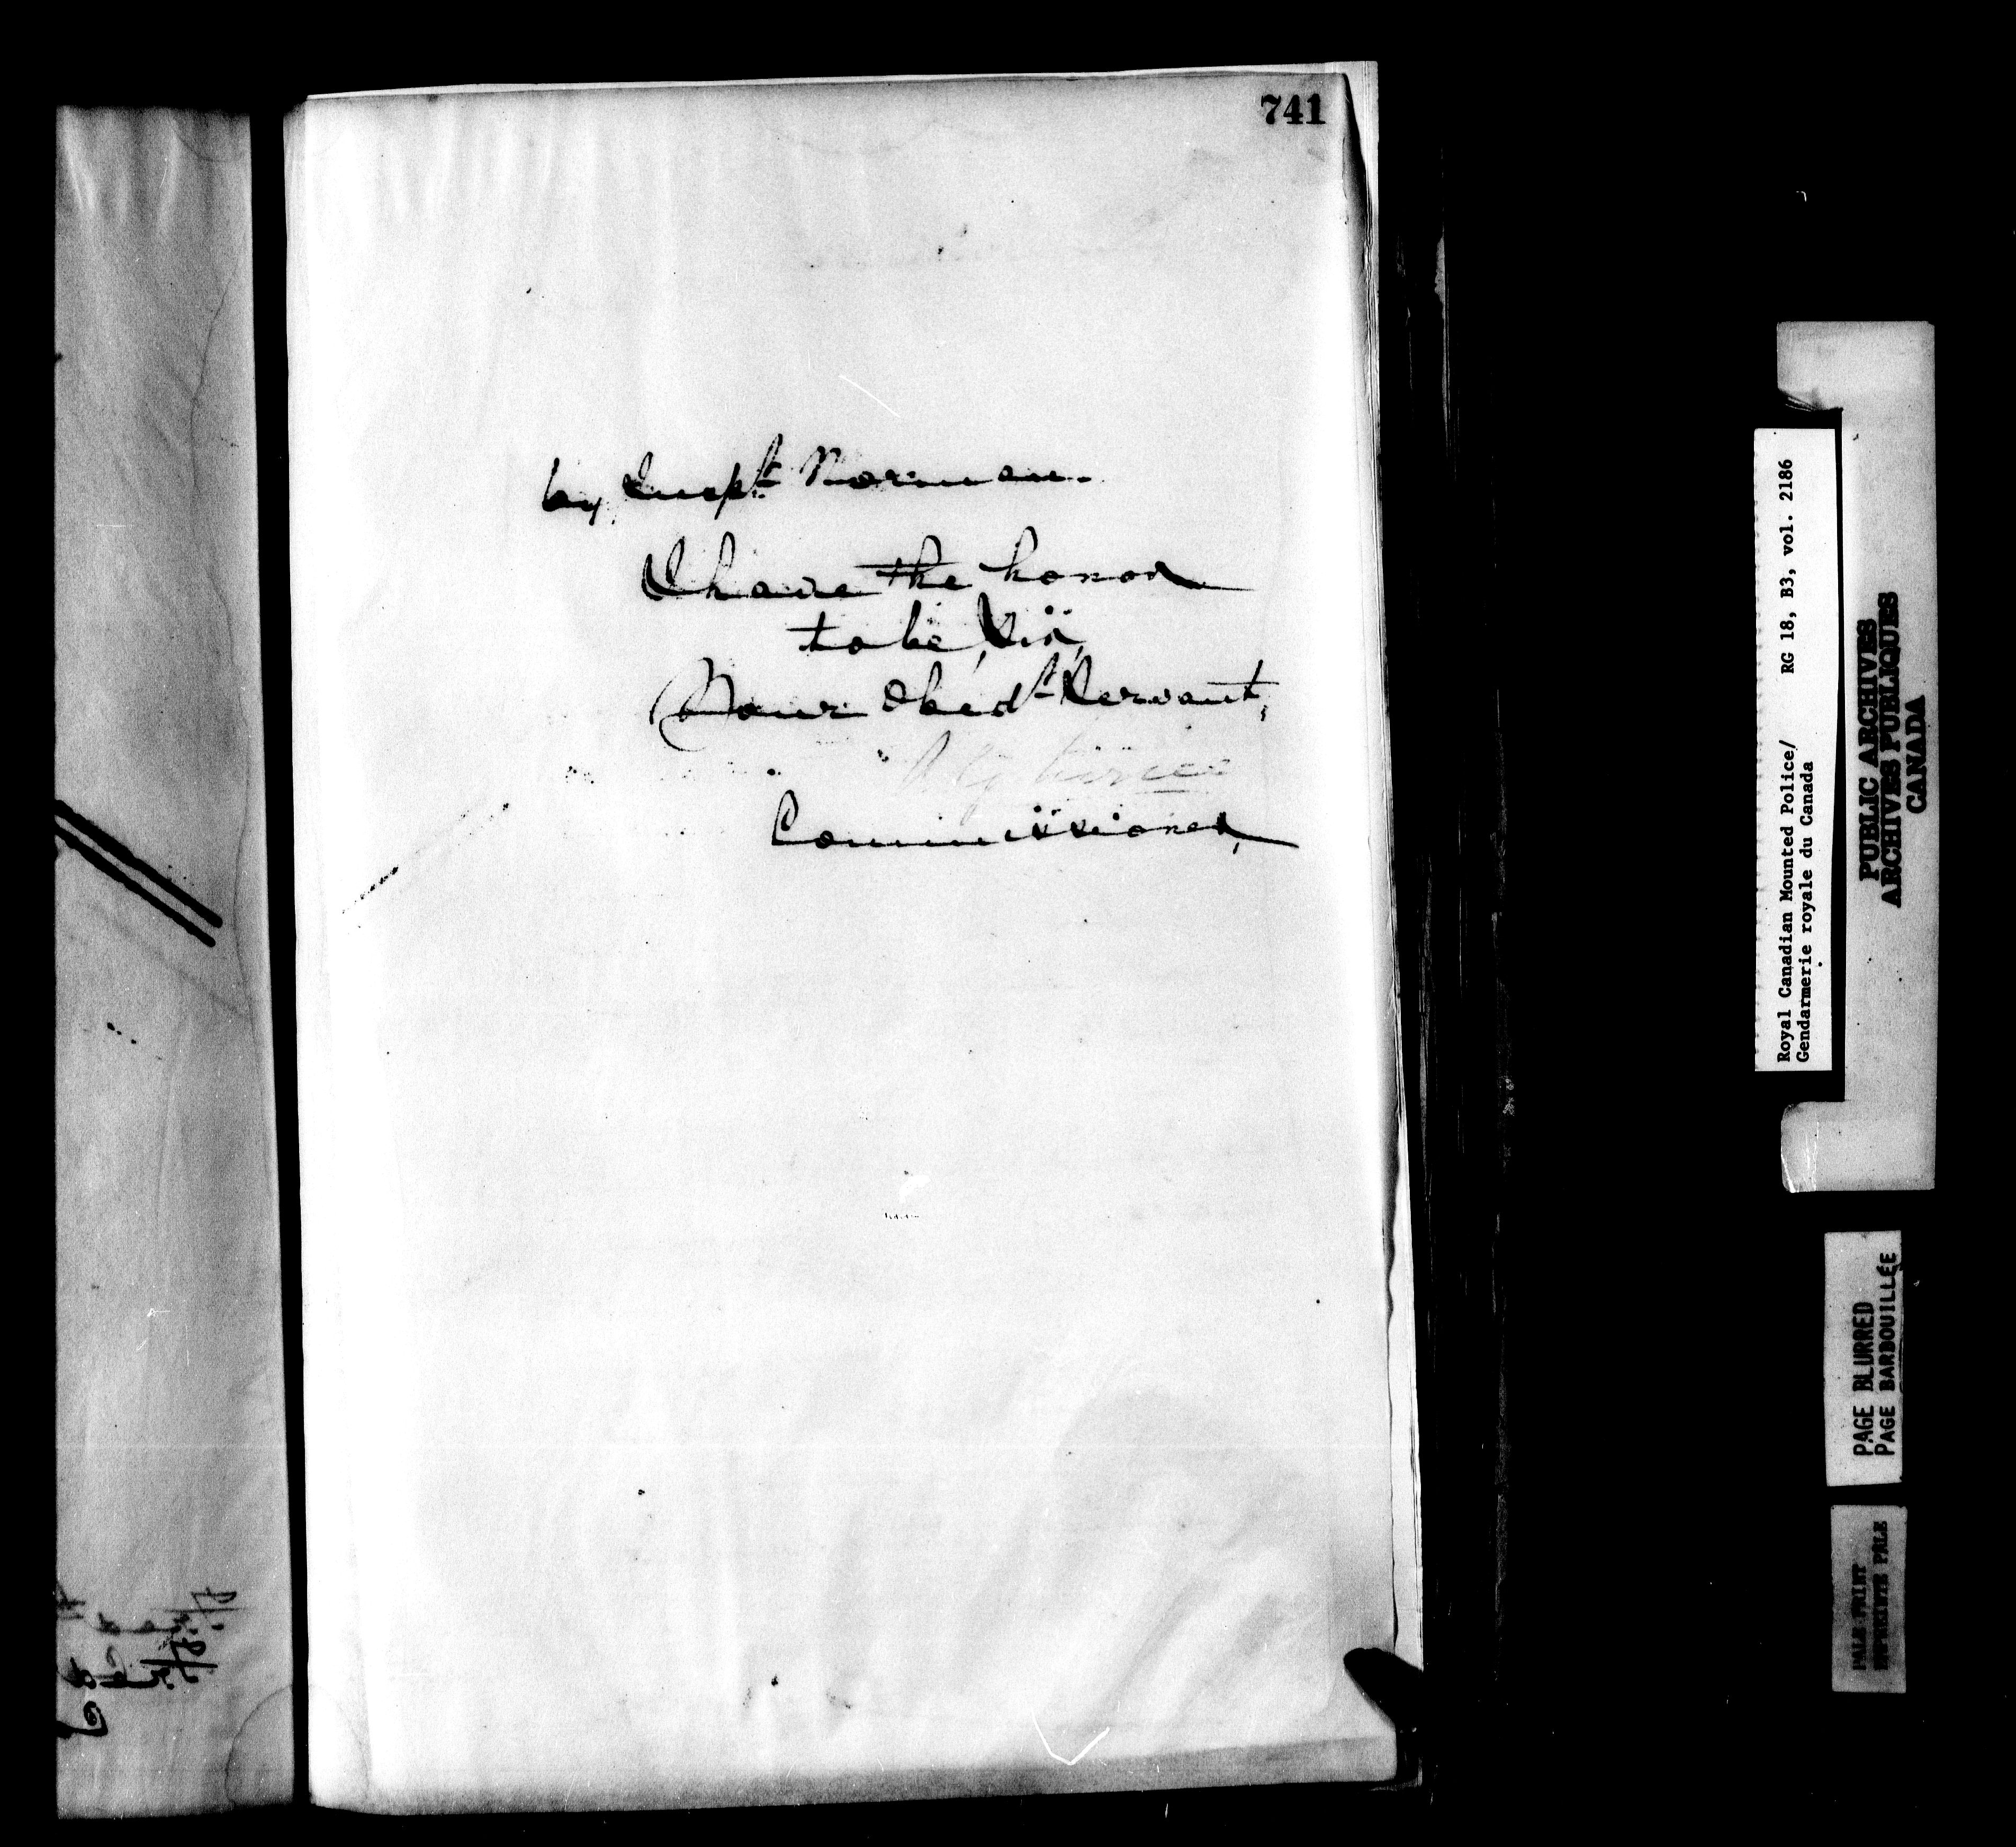 741
by Inspt Norman.
I have the honor
to be, Sir,
Your Obedt Servant,
Commissioner,
Royal Canadian Mounted Police/ RG 18, B3, vol. 2186
Gendarmerie royale du Canada
PUBLIC ARCHIVES
ARCHIVES PUBLIQUES
CANADA
PAGE BLURRED
PAGE BARBOUILLÉE
PALE PRINT
IMPRIMÉE PÂLE